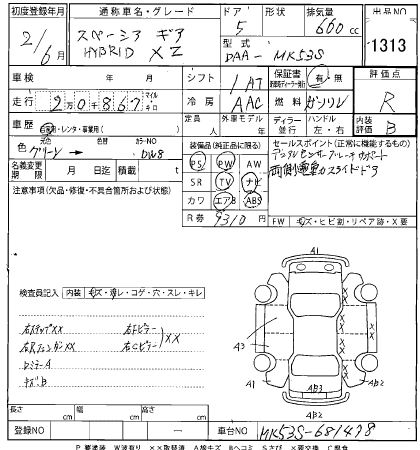 初度登録年月 通称車名・グレード ドア 形状 排気量 出品NO
21/6月 スペーシア ギア 5 660cc 1313
HYBRID XZ 型式 DAA-MK53S
車検 年 月 シフト 1AT 保証書 有・無 評価点
走行 2万0千867 マイル キロ 冷房 AAC 燃料 ガソリン R
車歴 自家用・レンタ・事業用( ) 定員 人 外車モデル 年 ディーラー 並行 ハンドル 左・右 内装評価 B
色 元色 グリーン → カラーNO DW8 装備品(純正品に限る) セールスポイント(正常に機能するもの)
名義変更期限 月 日 積載 t PS PW AW デュアルセンサーブレーキサポート
注意事項(欠品・修復・不具合箇所および状態) SR TV ナビ 両側電動スライドドア
カワ エアB ABS
R券 9310 円 FW キズ・ヒビ割・リペア跡・X要
検査員記入 内装 キズ・汚レ・コゲ・穴・スレ・キレ
右ステップXX 右Fピラー
右RフェンダーXX 右Cピラー XX
ロミラーA
キズB
A1
A3
A1
AB3
AB2
AB2
XX
長さ cm 幅 cm 高さ cm
登録NO 車台NO MK53S-681478
P 要塗装 W波有り XX取替済 A線キズ Bヘコミ Sさび X要交換 C腐食